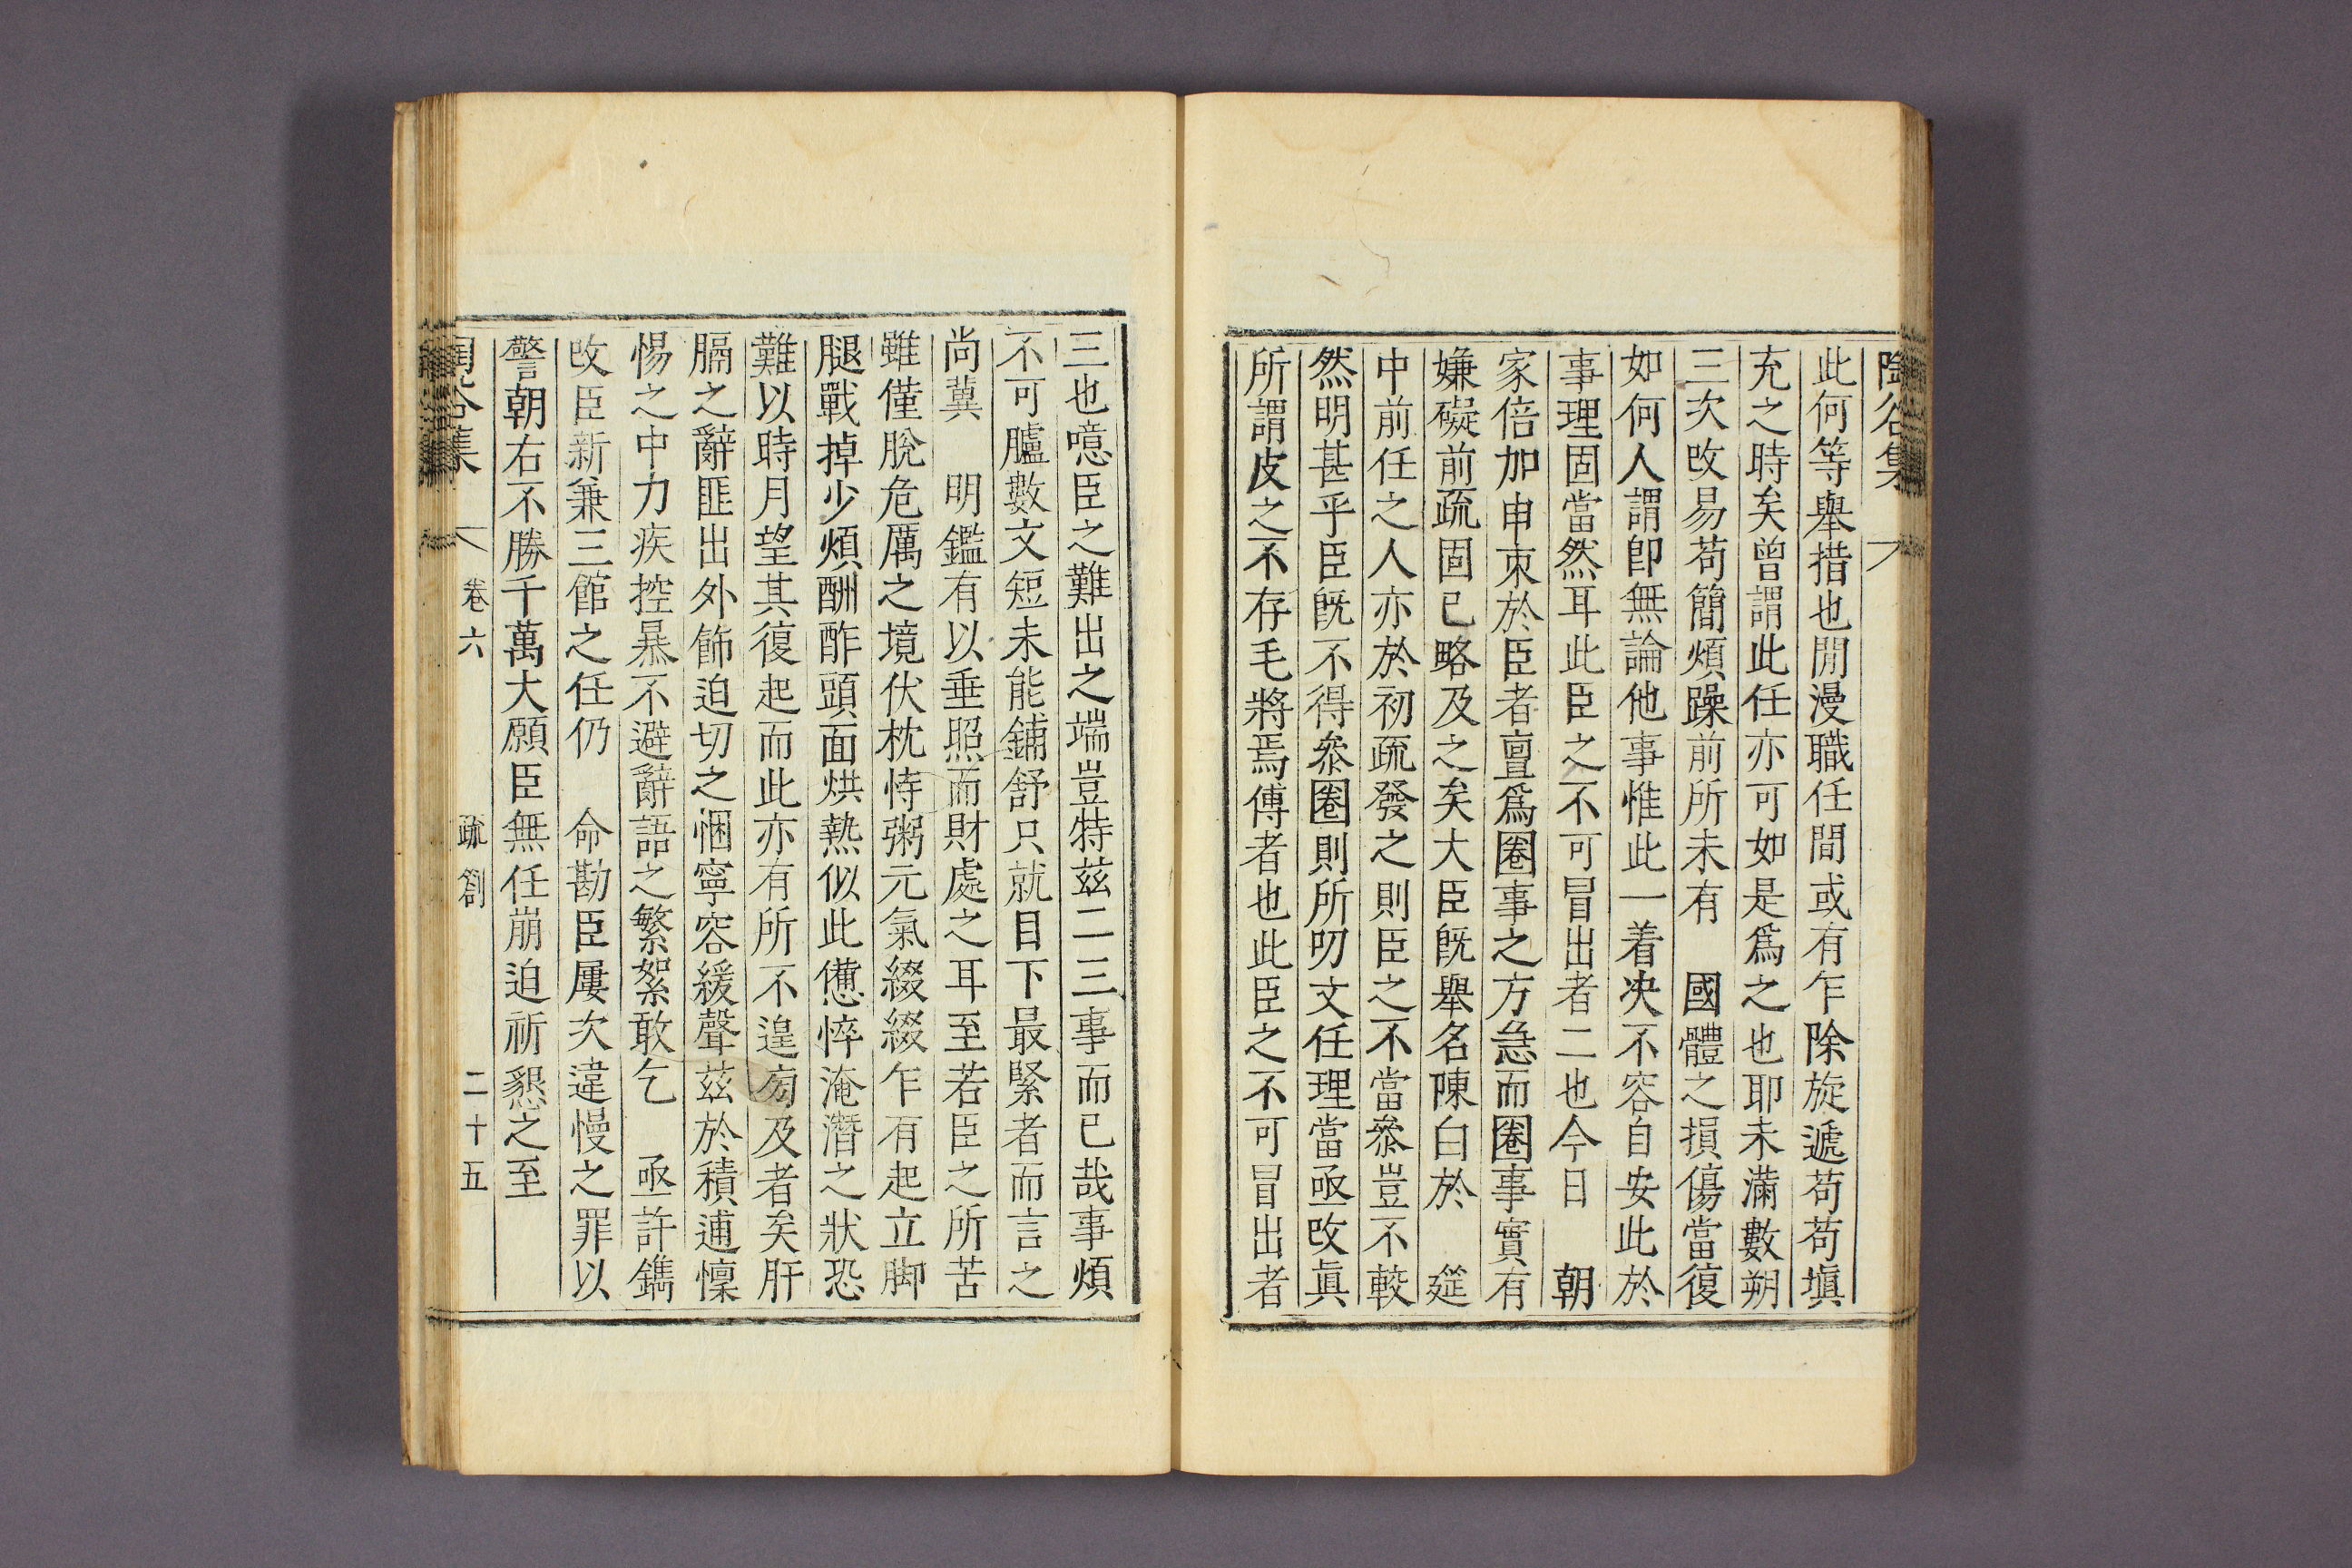 陶谷集
此何等舉措也閒漫職任間或有乍除旋遞苟苟塡
充之時矣曾謂此任亦可如是爲之也耶未滿數朔
三次改易苟簡煩躁前所未有 國體之損傷當復
如何人謂卽無論他事惟此一着决不容自安此於
事理固當然耳此臣之不可冒出者二也今日 朝
家倍加申束於臣者亶爲圈事之方急而圈事實有
嫌礙前疏固已略及之矣大臣旣舉名陳白於 筵
中前任之人亦於初疏發之則臣之不當參豈不較
然明甚乎臣旣不得叅圈則所叨文任理當亟改眞
所謂皮之不存毛將焉傅者也此臣之不可冒出者
三也噫臣之難出之端豈特茲二三事而已哉事煩
不可臚數文短未能鋪舒只就目下最緊者而言之
尚冀 明鑑有以垂照而財處之耳至若臣之所苦
雖僅脫危厲之境伏枕恃粥元氣綴綴乍有起立脚
腿戰掉少煩酬酢頭面烘熱似此憊悴淹潛之狀恐
難以時月望其復起而此亦有所不遑㫄及者矣肝
膈之辭匪出外飾迫切之悃寧容緩聲茲於積逋懍
惕之中力疾控暴不避辭語之繁絮敢乞 亟許鐫
改臣新兼三館之任仍 命勘臣屢次違慢之罪以
警朝右不勝千萬大願臣無任崩迫祈懇之至
陶谷集 卷六 疏箚 二十五